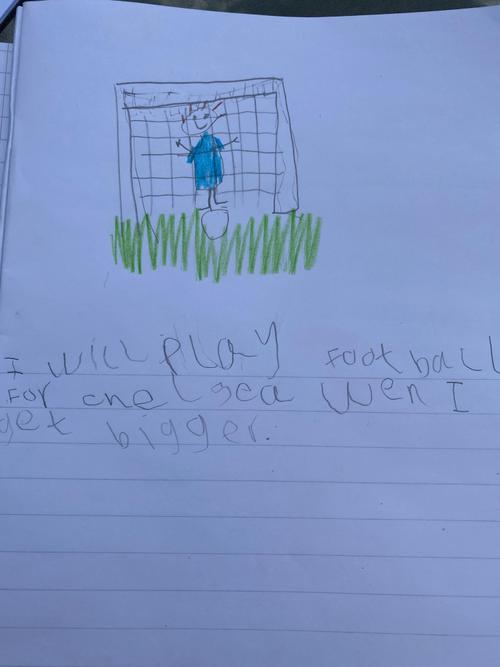 I will play football
For chelsea wen I
get bigger.